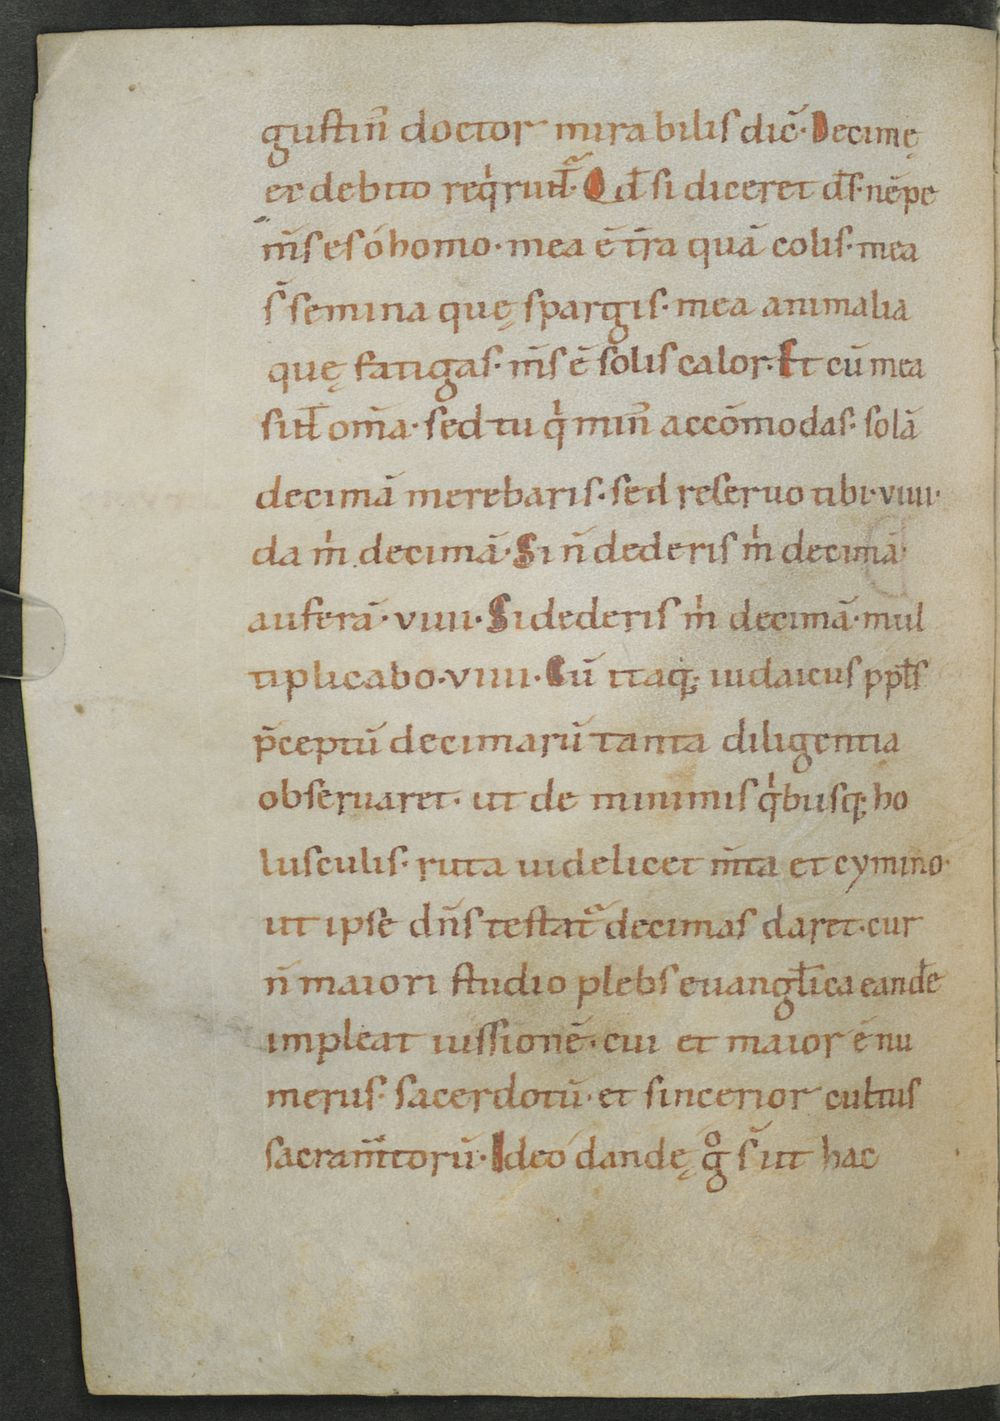 gustin᷒ doctor mirabilis dic̄. Decimę
ex debito req̍runt᷑. Qd̄ si diceret d̄s. nēpe
m̄s es ó homo. mea ē tr̄a quā colis. mea
s̄ semina quę spargis. mea animalia
quę fatigas. m̄s ē solis calor. Et cū mea
sint̄ om̄a. sed tu q̍ min᷒ accōmodas. solā
decimā merebaris. sed reseruo tibi. viiii.
da m̍ decimā. Si n̄ dederis m̍ decimā.
auferā. viiii. Si dederis m̍ decimā. mul
tiplicabo. viiii. Cū itaq; iudaicus ppl̄s
p̄ceptū decimarū tanta diligentia
obseruaret. ut de minimis q̍busq; ho
lusculis. ruta uidelicet m̄ta et cymino.
ut ipse dn̄s testat᷑ decimas daret. cur
n̄ maiori studio plebs euangl̄ica eandē
impleat iussionē. cui et maior ē nu
merus. sacerdotū. et sincerior cultus
sacram̄torū. Ideo dandę gͦ s̄ ut hac